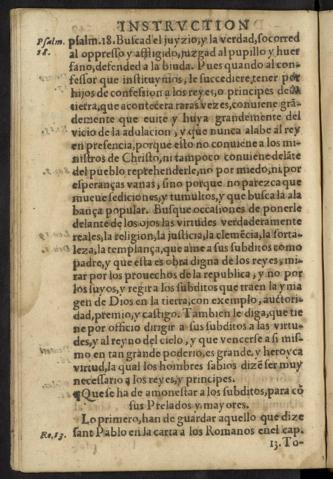 INSTRVCTION
Psalm. 18.
psalm.18. Buscad el juyzio, y la verdad, socorred
al oppresso y afligido, juzgad al pupillo y huer
fano, defended a la biuda. Pues quando al con-
fessor que instituymos, le succediere, tener por
hijos de confession a los reyes, o principes de la
tierra, que acontecera raras vezes, conuiene grã-
demente que euite y huya grandemente del
vicio de la adulacion, y que nunca alabe al rey
en presencia, porque esto no conuiene a los mi-
nistros de Christo, ni tampoco conuiene delãte
del pueblo reprehenderle, no por miedo, ni por
esperanças vanas, sino porque no parezca que
mueue sediciones, y tumultos, y que busca la ala
bança popular. Busque occasiones de ponerle
delante de los ojos las virtudes verdaderamente
reales, la religion, la justicia, la clemẽcia, la forta-
leza, la templança, que ame a sus subditos como
padre, y que esta es obra digna de los reyes, mi-
rar por los prouechos de la republica, y no por
los suyos, y regir a los subditos que traen la yma
gen de Dios en la tierra, con exemplo, auctori-
dad, premio, y castigo. Tambien le diga, que tie
ne por officio dirigir a sus subditos a las virtu-
des, y al reyno del cielo, y que vencerse a si mis-
mo en tan grande poderio, es grande, y heroyca
virtud, la qual los hombres sabios dizẽ ser muy
necessario a los reyes, y principes.
¶ Que se ha de amonestar a los subditos, para cõ
sus Prelados y mayores.
Lo primero, han de guardar aquello que dize
Ro. 13.
sant Pablo en la carta a los Romanos en el cap.
13. To-